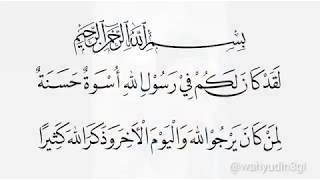 بِسْمِ اللهِ الرَّحْمٰنِ الرَّحِيْمِ
لَقَدْ كَانَ لَكُمْ فِيْ رَسُوْلِ اللهِ أُسْوَةٌ حَسَنَةٌ
لِمَنْ كَانَ يَرْجُو اللهَ وَالْيَوْمَ الْآخِرَ وَذَكَرَ اللهَ كَثِيْرًا
@wahyudin3gl